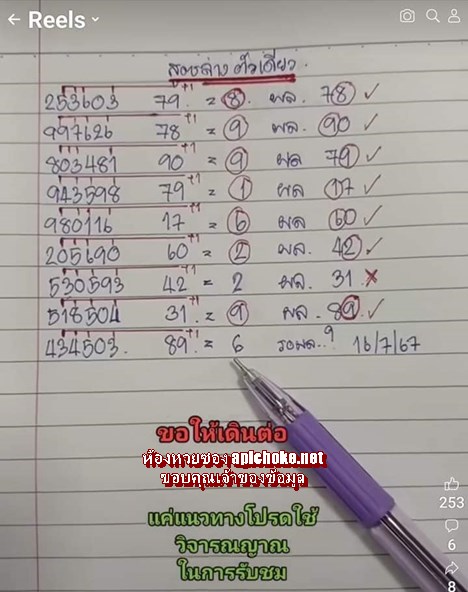 Reels
สูตรล่าง ตัวเดียว.
253603 79 +1 = 8 ผล. 78 ✓
997626 78 +1 = 9 ผล. 90 ✓
803481 90 +1 = 9 ผล 79 ✓
943598 79 +1 = 1 ผล 17 ✓
980116 17 +1 = 6 ผล 60 ✓
205690 60 +1 = 2 ผล. 42 ✓
530593 42 +1 = 2 ผล. 31 ✗
518504 31 +1 = 9 ผล. 89 ✓
434503. 89 +1 = 6 รอผล..? 16/7/67
ขอให้เดินต่อ
ห้องหวยซอง apichoke.net
ขอบคุณเจ้าของข้อมูล
แค่แนวทางโปรดใช้
วิจารณญาณ
ในการรับชม
253
6
8